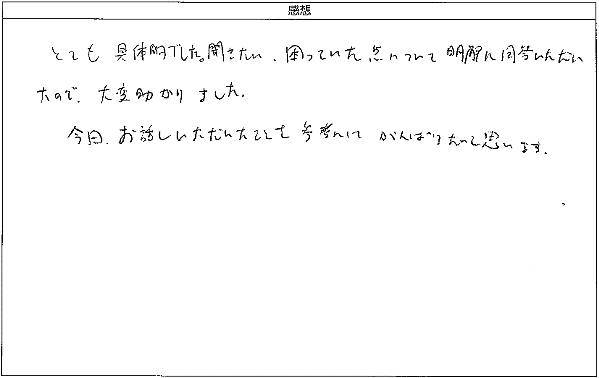 感想
とても 具体的でした。聞きたい、困っていた点について 明解に回答いただい
たので、大変助かりました。
今日、お話しいただいたことを参考にして がんばりたいと思います。